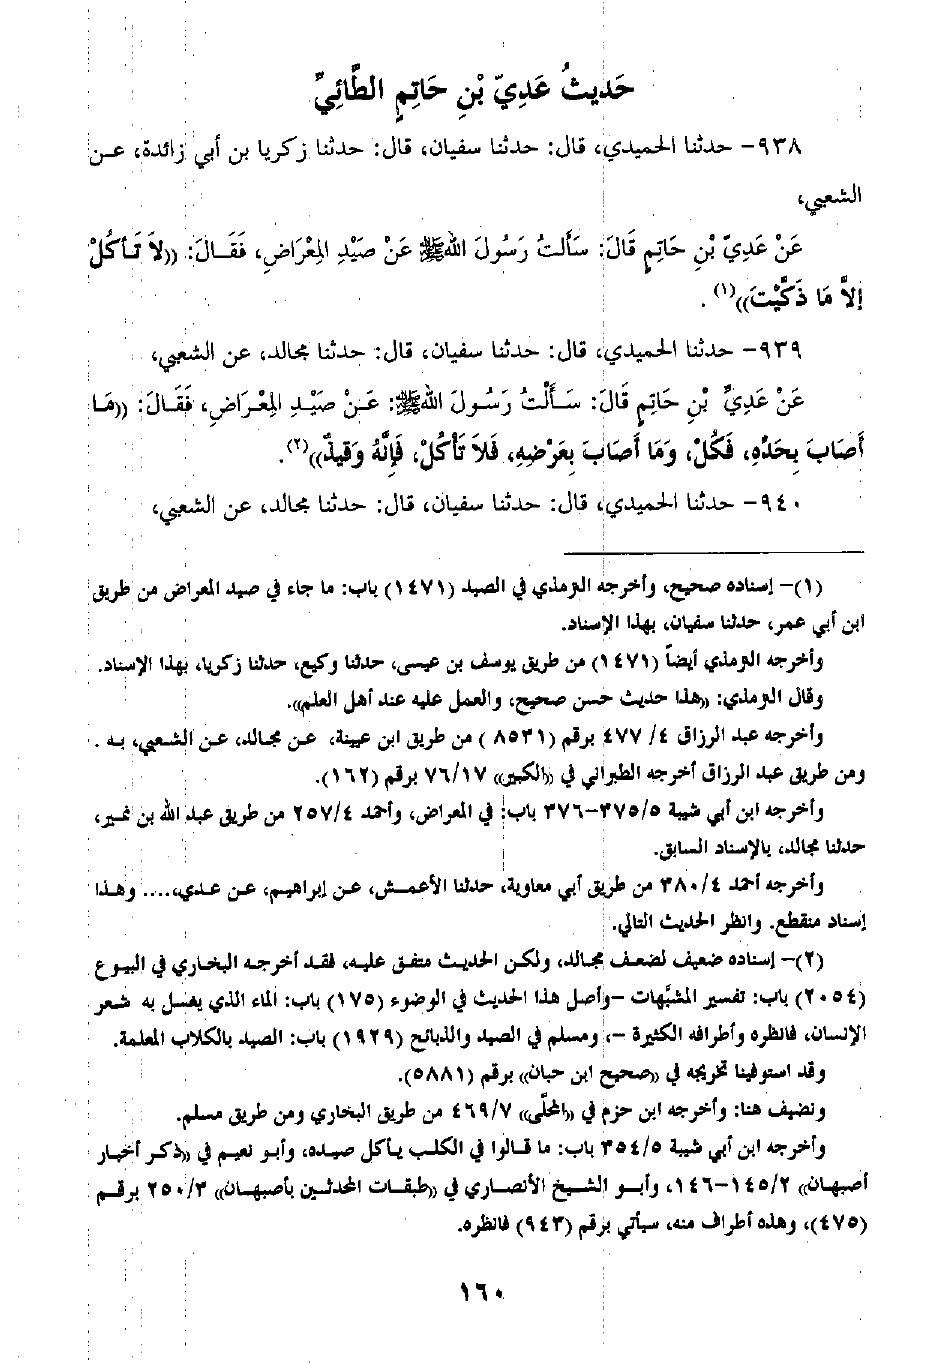 حَديثُ عَدِيّ بْنِ حَاتِمٍ الطَّائِيِّ
٩٣٨- حدثنا الحميدي، قال: حدثنا سفيان، قال: حدثنا زكريا بن أبي زائدة، عـن
الشعبي،
عَنْ عَدِيّ بْنِ حَاتِمٍ قَالَ: سَأَلتُ رَسُولَ اللهِ ﷺ عَنْ صَيْدِ المِعْرَاضِ، فَقَـالَ: ((لاَ تَـأكُلْ
إلاَّ مَا ذَكَّيْتَ))(١) .
٩٣٩- حدثنا الحميدي، قال: حدثنا سفيان، قال: حدثنا مجالد، عن الشعبي،
عَنْ عَدِيِّ بْنِ حَاتِمٍ قَالَ: سَـأَلْتُ رَسُـولَ اللهِ ﷺ: عَـنْ صَيْـدِ المِعْـرَاضِ، فَقَالَ: ((مَـا
أَصَابَ بِحَدِّهِ، فَكُلْ، وَمَا أَصَابَ بِعَرْضِهِ، فَلاَ تَأْكُلْ، فَإِنَّهُ وَقيذٌ))(٢).
٩٤٠- حدثنا الحميدي، قال: حدثنا سفيان، قال: حدثنا مجالد، عن الشعبي،
(١)- إسناده صحيح، وأخرجه الترمذي في الصيد (١٤٧١) باب: ما جاء في صيد المعراض من طريق
ابن أبي عمر، حدثنا سفيان، بهذا الإسناد.
وأخرجه الترمذي أيضاً (١٤٧١) من طريق يوسف بن عيسى، حدثنا وكيع، حدثنا زكريا، بهذا الإسناد.
وقال الترمذي: ((هذا حديث حسن صحيح، والعمل عليه عند أهل العلم)).
وأخرجه عبد الرزاق ٤/ ٤٧٧ برقم (٨٥٣١) من طريق ابن عيينة، عـن مجـالد، عـن الشعبي، بـه .
ومن طريق عبد الرزاق أخرجه الطبراني في ((الكبير)) ٧٦/١٧ برقم (١٦٢).
وأخرجه ابن أبي شيبة ٣٧٥/٥-٣٧٦ باب: في المعراض، وأحمد ٢٥٧/٤ من طريق عبد الله بن نمير،
حدثنا مجالد، بالإسناد السابق.
وأخرجه أحمد ٣٨٠/٤ من طريق أبي معاوية، حدثنا الأعمـش، عـن إبراهيـم، عـن عـدي،.... وهـذا
إسناد منقطع. وانظر الحديث التالي.
(٢)- إسناده ضعيف لضعف مجالد، ولكن الحديث متفق عليه، فقـد أخرجـه البخـاري في البيـوع
(٢٠٥٤) باب: تفسير المشبّهات –وأصل هذا الحديث في الوضوء (١٧٥) باب: الماء الذي يغسل به شعر
الإنسان، فانظره وأطرافه الكثيرة –، ومسلم في الصيد والذبائح (١٩٢٩) باب: الصيد بالكلاب المعلمة.
وقد استوفينا تخريجه في ((صحيح ابن حبان)) برقم (٥٨٨١).
ونضيف هنا: وأخرجه ابن حزم في ((المحلّى)) ٤٦٩/٧ من طريق البخاري ومن طريق مسلم.
وأخرجه ابن أبي شيبة ٣٥٤/٥ باب: ما قـالوا في الكلب يـأكل صيـده، وأبـو نعيـم في ((ذكـر أخبـار
أصبهان)) ١٤٥/٢-١٤٦، وأبـو الشـيخ الأنصـاري في ((طبقات المحدثـين بأصبهـان)) ٢٥٠/٣ برقـم
(٤٧٥)، وهذه أطراف منه، سيأتي برقم (٩٤٣) فانظره.
١٦٠